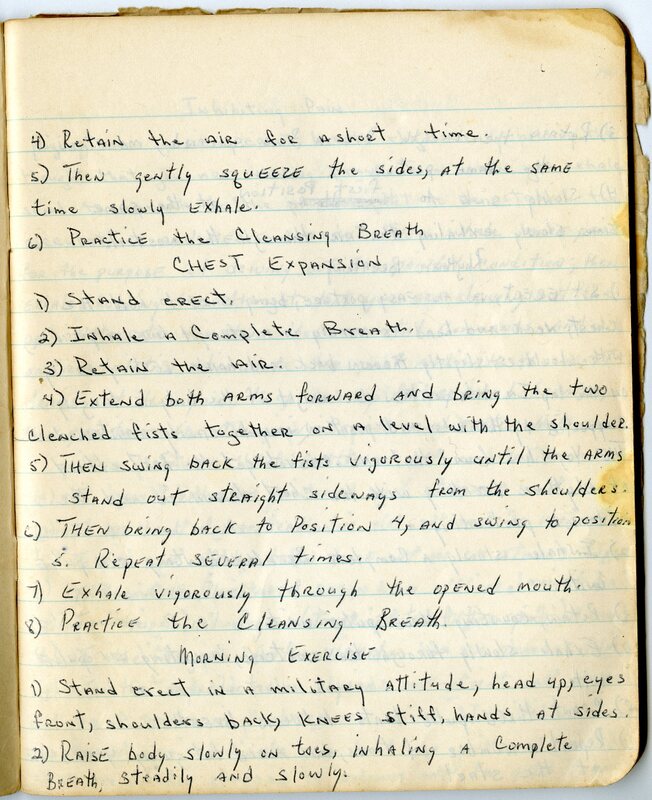 4) Retain the air for a short time.
5) Then gently squeeze the sides, at the same
time slowly exhale.
6) Practice the Cleansing Breath
CHEST EXPANSION
1) Stand erect.
2) Inhale a Complete Breath.
3) Retain the air.
4) Extend both arms forward and bring the two
clenched fists together on a level with the shoulder.
5) Then swing back the fists vigorously until the arms
stand out straight sideways from the shoulders.
6) Then bring back to Position 4, and swing to position
5. Repeat several times.
7) Exhale vigorously through the opened mouth.
8) Practice the Cleansing Breath.
Morning Exercise
1) Stand erect in a military attitude, head up, eyes
front, shoulders back, knees stiff, hands at sides.
2) Raise body slowly on toes, inhaling a Complete
Breath, steadily and slowly.